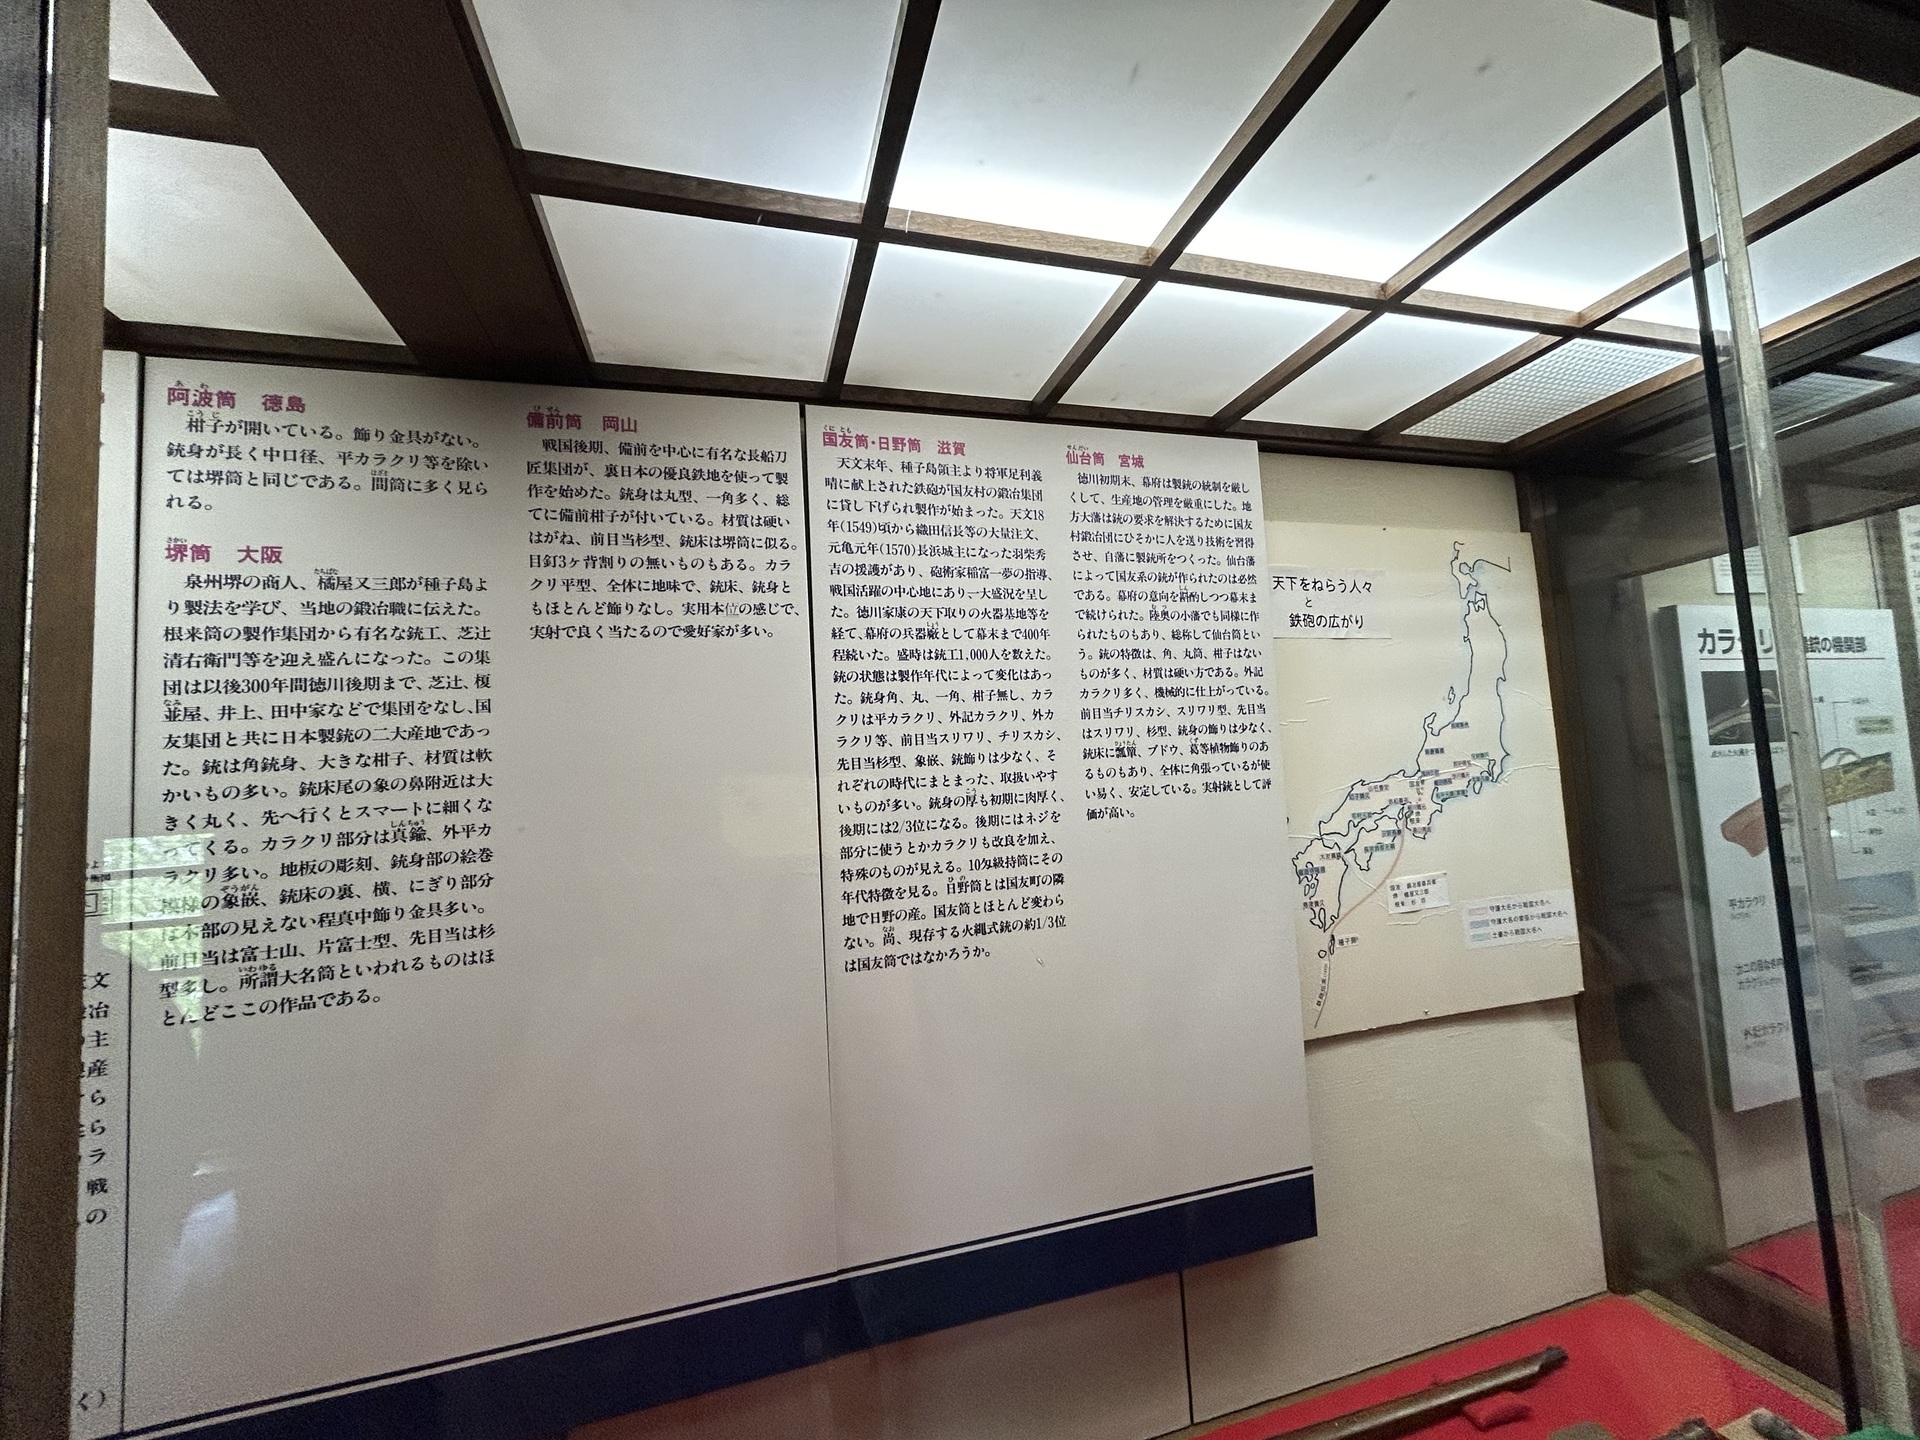 阿波筒　徳島
柑子が開いている。飾り金具がない。
銃身が長く中口径、平カラクリ等を除い
ては堺筒と同じである。間筒に多く見ら
れる。
堺筒　大阪
泉州堺の商人、橘屋又三郎が種子島よ
り製法を学び、当地の鍛冶職に伝えた。
根来筒の製作集団から有名な銃工、芝辻
清右衛門等を迎え盛んになった。この集
団は以後300年間徳川後期まで、芝辻、榎
並屋、井上、田中家などで集団をなし、国
友集団と共に日本製銃の二大産地であっ
た。銃は角銃身、大きな柑子、材質は軟
かいもの多い。銃床尾の象の鼻附近は大
きく丸く、先へ行くとスマートに細くな
ってくる。カラクリ部分は真鍮、外平カ
ラクリ多い。地板の彫刻、銃身部の絵巻
模様の象嵌、銃床の裏、横、にぎり部分
は木部の見えない程真中飾り金具多い。
前目当は富士山、片富士型、先目当は杉
型多し。所謂大名筒といわれるものはほ
とんどここの作品である。
備前筒　岡山
戦国後期、備前を中心に有名な長船刀
匠集団が、裏日本の優良鉄地を使って製
作を始めた。銃身は丸型、一角多く、総
てに備前柑子が付いている。材質は硬い
はがね、前目当杉型、銃床は堺筒に似る。
目釘3ヶ背割りの無いものもある。カラ
クリ平型、全体に地味で、銃床、銃身と
もほとんど飾りなし。実用本位の感じで、
実射で良く当たるので愛好家が多い。
国友筒・日野筒　滋賀
天文末年、種子島領主より将軍足利義
晴に献上された鉄砲が国友村の鍛冶集団
に貸し下げられ製作が始まった。天文18
年(1549)頃から織田信長等の大量注文、
元亀元年(1570)長浜城主になった羽柴秀
吉の援護があり、砲術家稲富一夢の指導、
戦国活躍の中心地にあり一大盛況を呈し
た。徳川家康の天下取りの火器基地等を
経て、幕府の兵器廠として幕末まで400年
程続いた。盛時は銃工1,000人を数えた。
銃の状態は製作年代によって変化はあっ
た。銃身角、丸、一角、柑子無し、カラ
クリは平カラクリ、外記カラクリ、外カ
ラクリ等、前目当スリワリ、チリスカシ、
先目当杉型、象嵌、銃飾りは少なく、そ
れぞれの時代にまとまった、取扱いやす
いものが多い。銃身の厚も初期に肉厚く、
後期には2/3位になる。後期にはネジを
部分に使うとかカラクリも改良を加え、
特殊のものが見える。10匁級持筒にその
年代特徴を見る。日野筒とは国友町の隣
地で日野の産。国友筒とほとんど変わら
ない。尚、現存する火縄式銃の約1/3位
は国友筒ではなかろうか。
仙台筒　宮城
徳川初期末、幕府は製銃の統制を厳し
くして、生産地の管理を厳重にした。地
方大藩は銃の要求を解決するために国友
村鍛冶団にひそかに人を送り技術を習得
させ、自藩に製銃所をつくった。仙台藩
によって国友系の銃が作られたのは必然
である。幕府の意向を斟酌しつつ幕末ま
で続けられた。陸奥の小藩でも同様に作
られたものもあり、総称して仙台筒とい
う。銃の特徴は、角、丸筒、柑子はない
ものが多く、材質は硬い方である。外記
カラクリ多く、機械的に仕上がっている。
前目当チリスカシ、スリワリ型、先目当
はスリワリ、杉型、銃身の飾りは少なく、
銃床に瓢箪、ブドウ、葛等植物飾りのあ
るものもあり、全体に角張っているが使
い易く、安定している。実射銃として評
価が高い。
天下をねらう人々
と
鉄砲の広がり
種子島
守護大名から戦国大名へ
守護大名の家臣から戦国大名へ
土豪から戦国大名へ
カラクリ
銃の機関部
平カラクリ
外記カラクリ
文
治
主
産
ら
ら
ラ
戦
の
く)